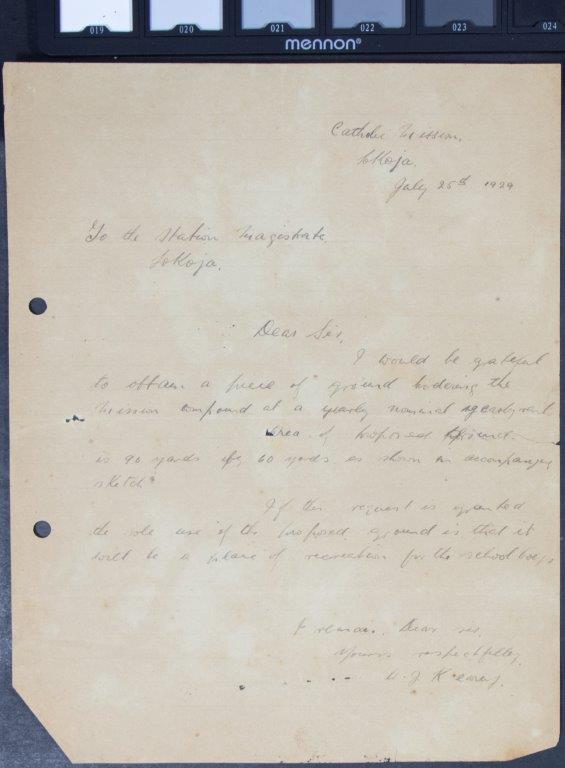 019 020 021 022 023 024
mennon®
Catholic Mission,
Lokoja.
July 25th 1929
To the Station Magistrate,
Lokoja.
Dear Sir,
I would be grateful
to obtain a piece of ground bordering the
Mission compound at a yearly nominal rent
Area of proposed
is 90 yards by 60 yards as shown in accompanying
sketch.
If this request is granted
the sole use of the proposed ground is that it
will be a place of recreation for the school boys
I remain, Dear sir,
Yours respectfully,